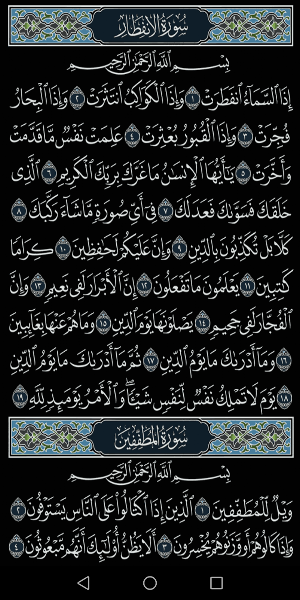 سُورَةُ الِانفِطَارِ
بِسْمِ اللَّهِ الرَّحْمَٰنِ الرَّحِيمِ
إِذَا السَّمَاءُ انفَطَرَتْ ١ وَإِذَا الْكَوَاكِبُ انتَثَرَتْ ٢ وَإِذَا الْبِحَارُ
فُجِّرَتْ ٣ وَإِذَا الْقُبُورُ بُعْثِرَتْ ٤ عَلِمَتْ نَفْسٌ مَّا قَدَّمَتْ
وَأَخَّرَتْ ٥ يَٰأَيُّهَا الْإِنسَٰنُ مَا غَرَّكَ بِرَبِّكَ الْكَرِيمِ ٦ الَّذِى
خَلَقَكَ فَسَوَّىٰكَ فَعَدَلَكَ ٧ فِى أَىِّ صُورَةٍ مَّا شَاءَ رَكَّبَكَ ٨
كَلَّا بَلْ تُكَذِّبُونَ بِالدِّينِ ٩ وَإِنَّ عَلَيْكُمْ لَحَٰفِظِينَ ١٠ كِرَامًا
كَٰتِبِينَ ١١ يَعْلَمُونَ مَا تَفْعَلُونَ ١٢ إِنَّ الْأَبْرَارَ لَفِى نَعِيمٍ ١٣ وَإِنَّ
الْفُجَّارَ لَفِى جَحِيمٍ ١٤ يَصْلَوْنَهَا يَوْمَ الدِّينِ ١٥ وَمَا هُمْ عَنْهَا بِغَائِبِينَ
١٦ وَمَا أَدْرَىٰكَ مَا يَوْمُ الدِّينِ ١٧ ثُمَّ مَا أَدْرَىٰكَ مَا يَوْمُ الدِّينِ
١٨ يَوْمَ لَا تَمْلِكُ نَفْسٌ لِّنَفْسٍ شَيْـًٔا وَالْأَمْرُ يَوْمَئِذٍ لِّلَّهِ ١٩
سُورَةُ المُطَفِّفِينَ
بِسْمِ اللَّهِ الرَّحْمَٰنِ الرَّحِيمِ
وَيْلٌ لِّلْمُطَفِّفِينَ ١ الَّذِينَ إِذَا اكْتَالُوا عَلَى النَّاسِ يَسْتَوْفُونَ ٢
وَإِذَا كَالُوهُمْ أَو وَّزَنُوهُمْ يُخْسِرُونَ ٣ أَلَا يَظُنُّ أُولَٰئِكَ أَنَّهُم مَّبْعُوثُونَ ٤